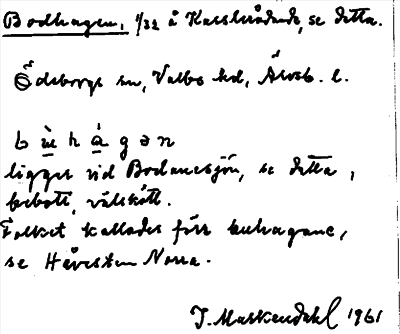 Bodhagen, 1/32 å Kasebrådende, se detta.
Ödeborgs sn, Valbo hd, Älvsb. l.
bùhágən
ligger vid Bodanesjön, se detta,
bebott, välskött.
Folket kallades förr buhagane,
se Håvesten Norra.
J. Markendahl 1961